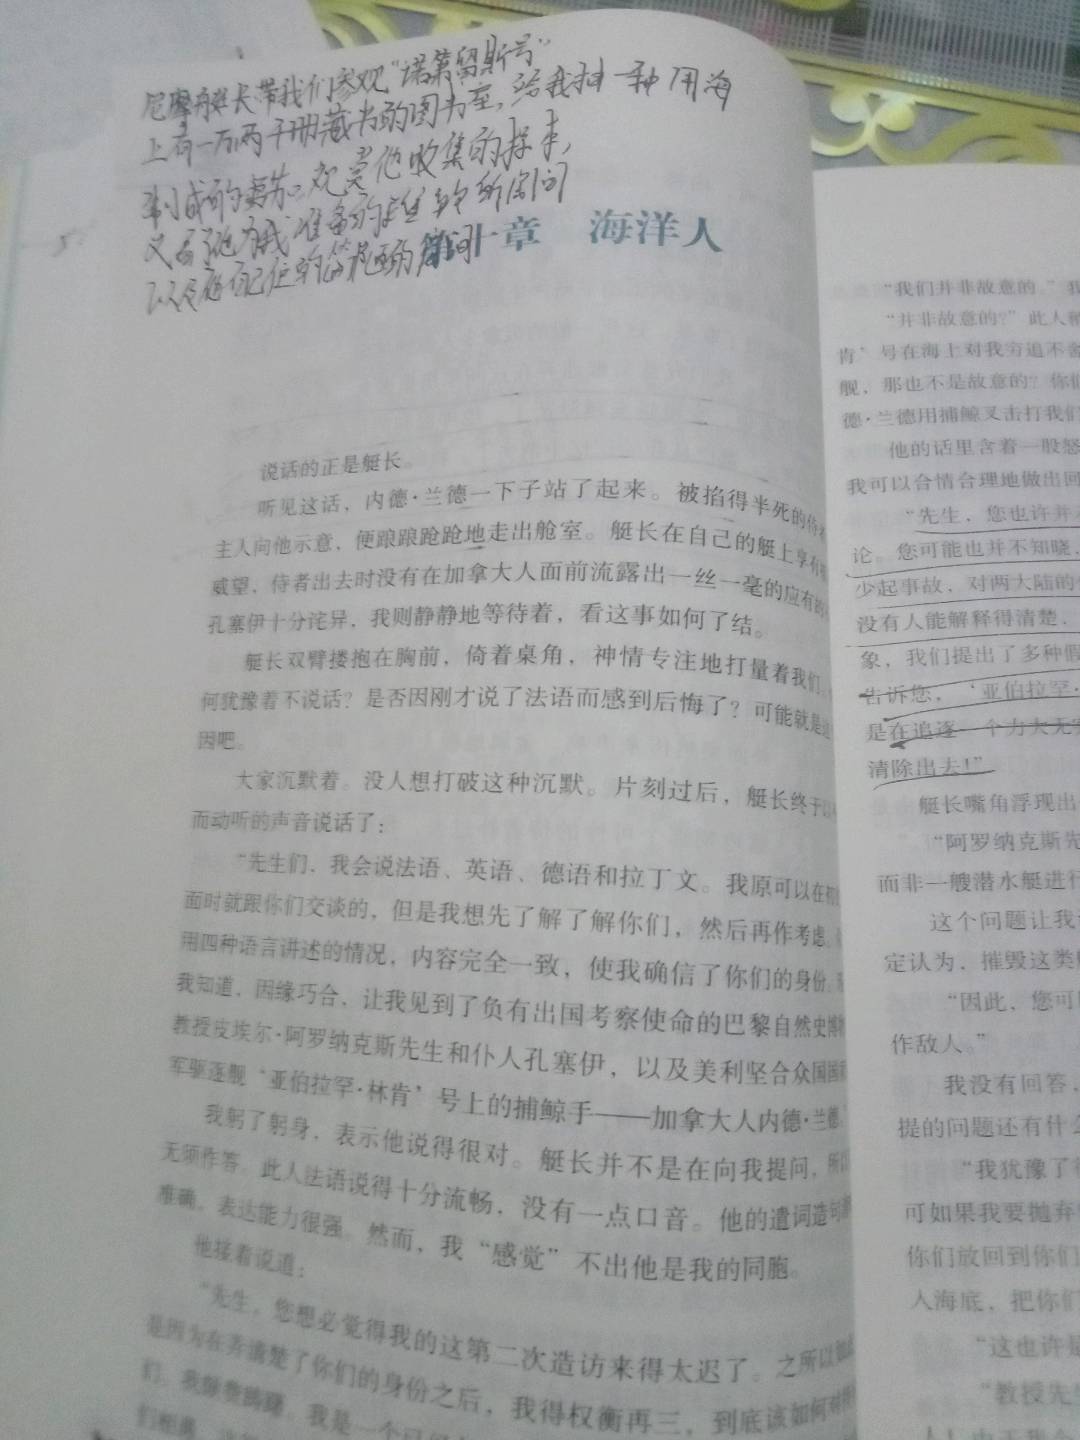 尼摩艇长带我们参观“诺第留斯号”
上有一万两千册藏书的图书室，给我抽一种用海
制成的雪茄。观赏他收集的
又看了他为我准备的房间
以及
第十章 海洋人
说话的正是艇长。
听见这话，内德·兰德一下子站了起来。被掐得半死的侍
主人向他示意，便踉踉跄跄地走出舱室。艇长在自己的艇上享有
威望，侍者出去时没有在加拿大人面前流露出一丝一毫的应有的
孔塞伊十分诧异，我则静静地等待着，看这事如何了结。
艇长双臂搂抱在胸前，倚着桌角，神情专注地打量着我们。
何犹豫着不说话？是否因刚才说了法语而感到后悔了？可能就是
因吧。
大家沉默着。没人想打破这种沉默。片刻过后，艇长终于以
而动听的声音说话了：
“先生们，我会说法语、英语、德语和拉丁文。我原可以在初
面时就跟你们交谈的，但是我想先了解了解你们，然后再作考虑。
用四种语言讲述的情况，内容完全一致，使我确信了你们的身份。
我知道，因缘巧合，让我见到了负有出国考察使命的巴黎自然史博
教授皮埃尔·阿罗纳克斯先生和仆人孔塞伊，以及美利坚合众国国
军驱逐舰‘亚伯拉罕·林肯’号上的捕鲸手——加拿大人内德·兰德。
我躬了躬身，表示他说得很对。艇长并不是在向我提问，所以
无须作答。此人法语说得十分流畅，没有一点口音。他的遣词造句
准确，表达能力很强。然而，我“感觉”不出他是我的同胞。
他接着说道：
“先生，您想必觉得我的这第二次造访来得太迟了。之所以如此
是因为在弄清楚了你们的身份之后，我得权衡再三，到底该如何对
们。我踌躇。我是一个已
“我们并非故意的。”我
“并非故意的？”此人稍
肯’号在海上对我穷追不舍
舰，那也不是故意的？你们
德·兰德用捕鲸叉击打我们
他的话里含着一股怒
我可以合情合理地做出回
“先生，您也许并
论。您可能也并不知晓，
少起事故，对两大陆的
没有人能解释得清楚，
象，我们提出了多种假
告诉您，‘亚伯拉罕·
是在追逐一个力大无
清除出去！”
艇长嘴角浮现出
“阿罗纳克斯先
而非一艘潜水艇进行
这个问题让我
定认为，摧毁这类
“因此，您可
作敌人。”
我没有回答，
提的问题还有什么
“我犹豫了很
可如果我要抛弃
你们放回到你们
入海底，把你们
“这也许是
“教授先生